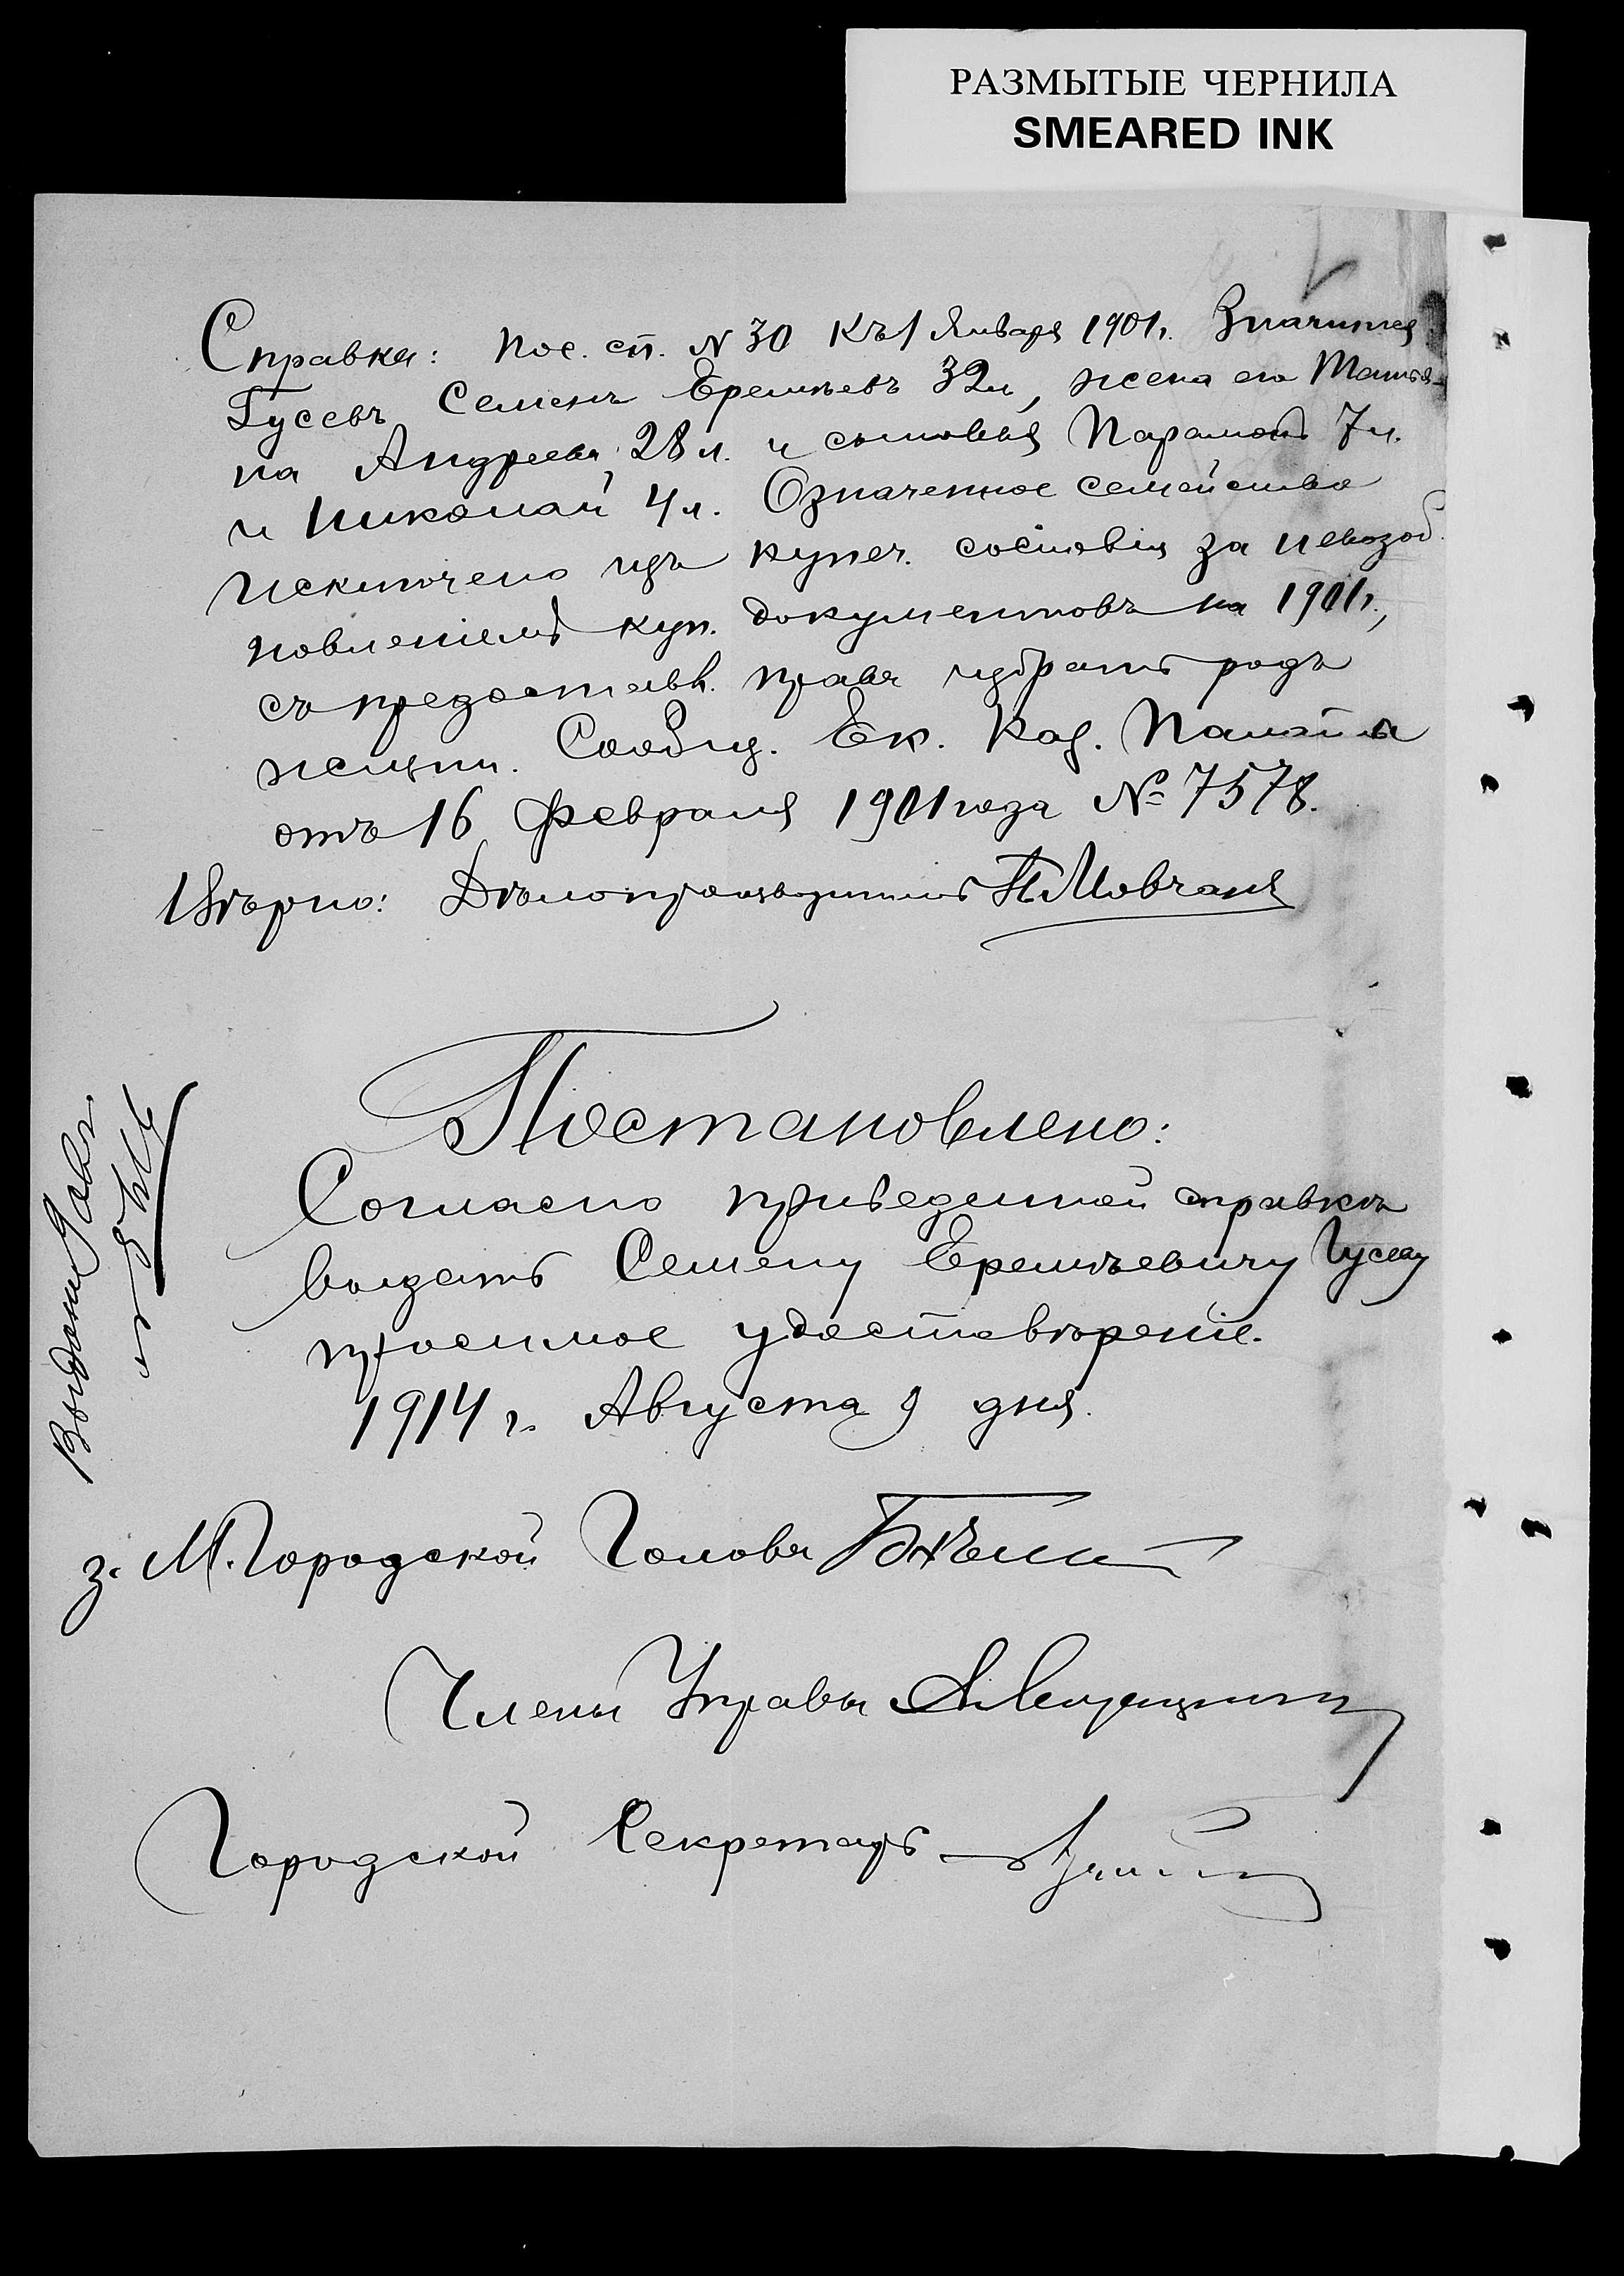 РАЗМЫТЫЕ ЧЕРНИЛА
SMEARED INK
Справка: Пос. сп. № 30 Къ 1 Января 1901 г. Значится
Гусевъ Семенъ Еремѣевъ 32 л, жена его Татья-
на Андреева, 28 л. и сыновья Парамонъ 7 л.
и Николай 4 л. Означенное семейство
исключено изъ купеч. сословія за невозоб-
новленіемъ куп. документовъ на 1901 г.,
съ предоставл. права избрать родъ
жизни. Сообщ. Ек. Каз. Палаты
отъ 16 Февраля 1901 года № 7578.
Вѣрно: Дѣлопроизводитель П. Мовчанъ
Постановлено:
Согласно приведенной справкѣ
выдать Семену Еремѣевичу Гусеву
просимое удостовѣреніе.
1914 г. Августа 9 дня.
з. М. Городской Головы
Члены Управы
Городской Секретарь
Выдано